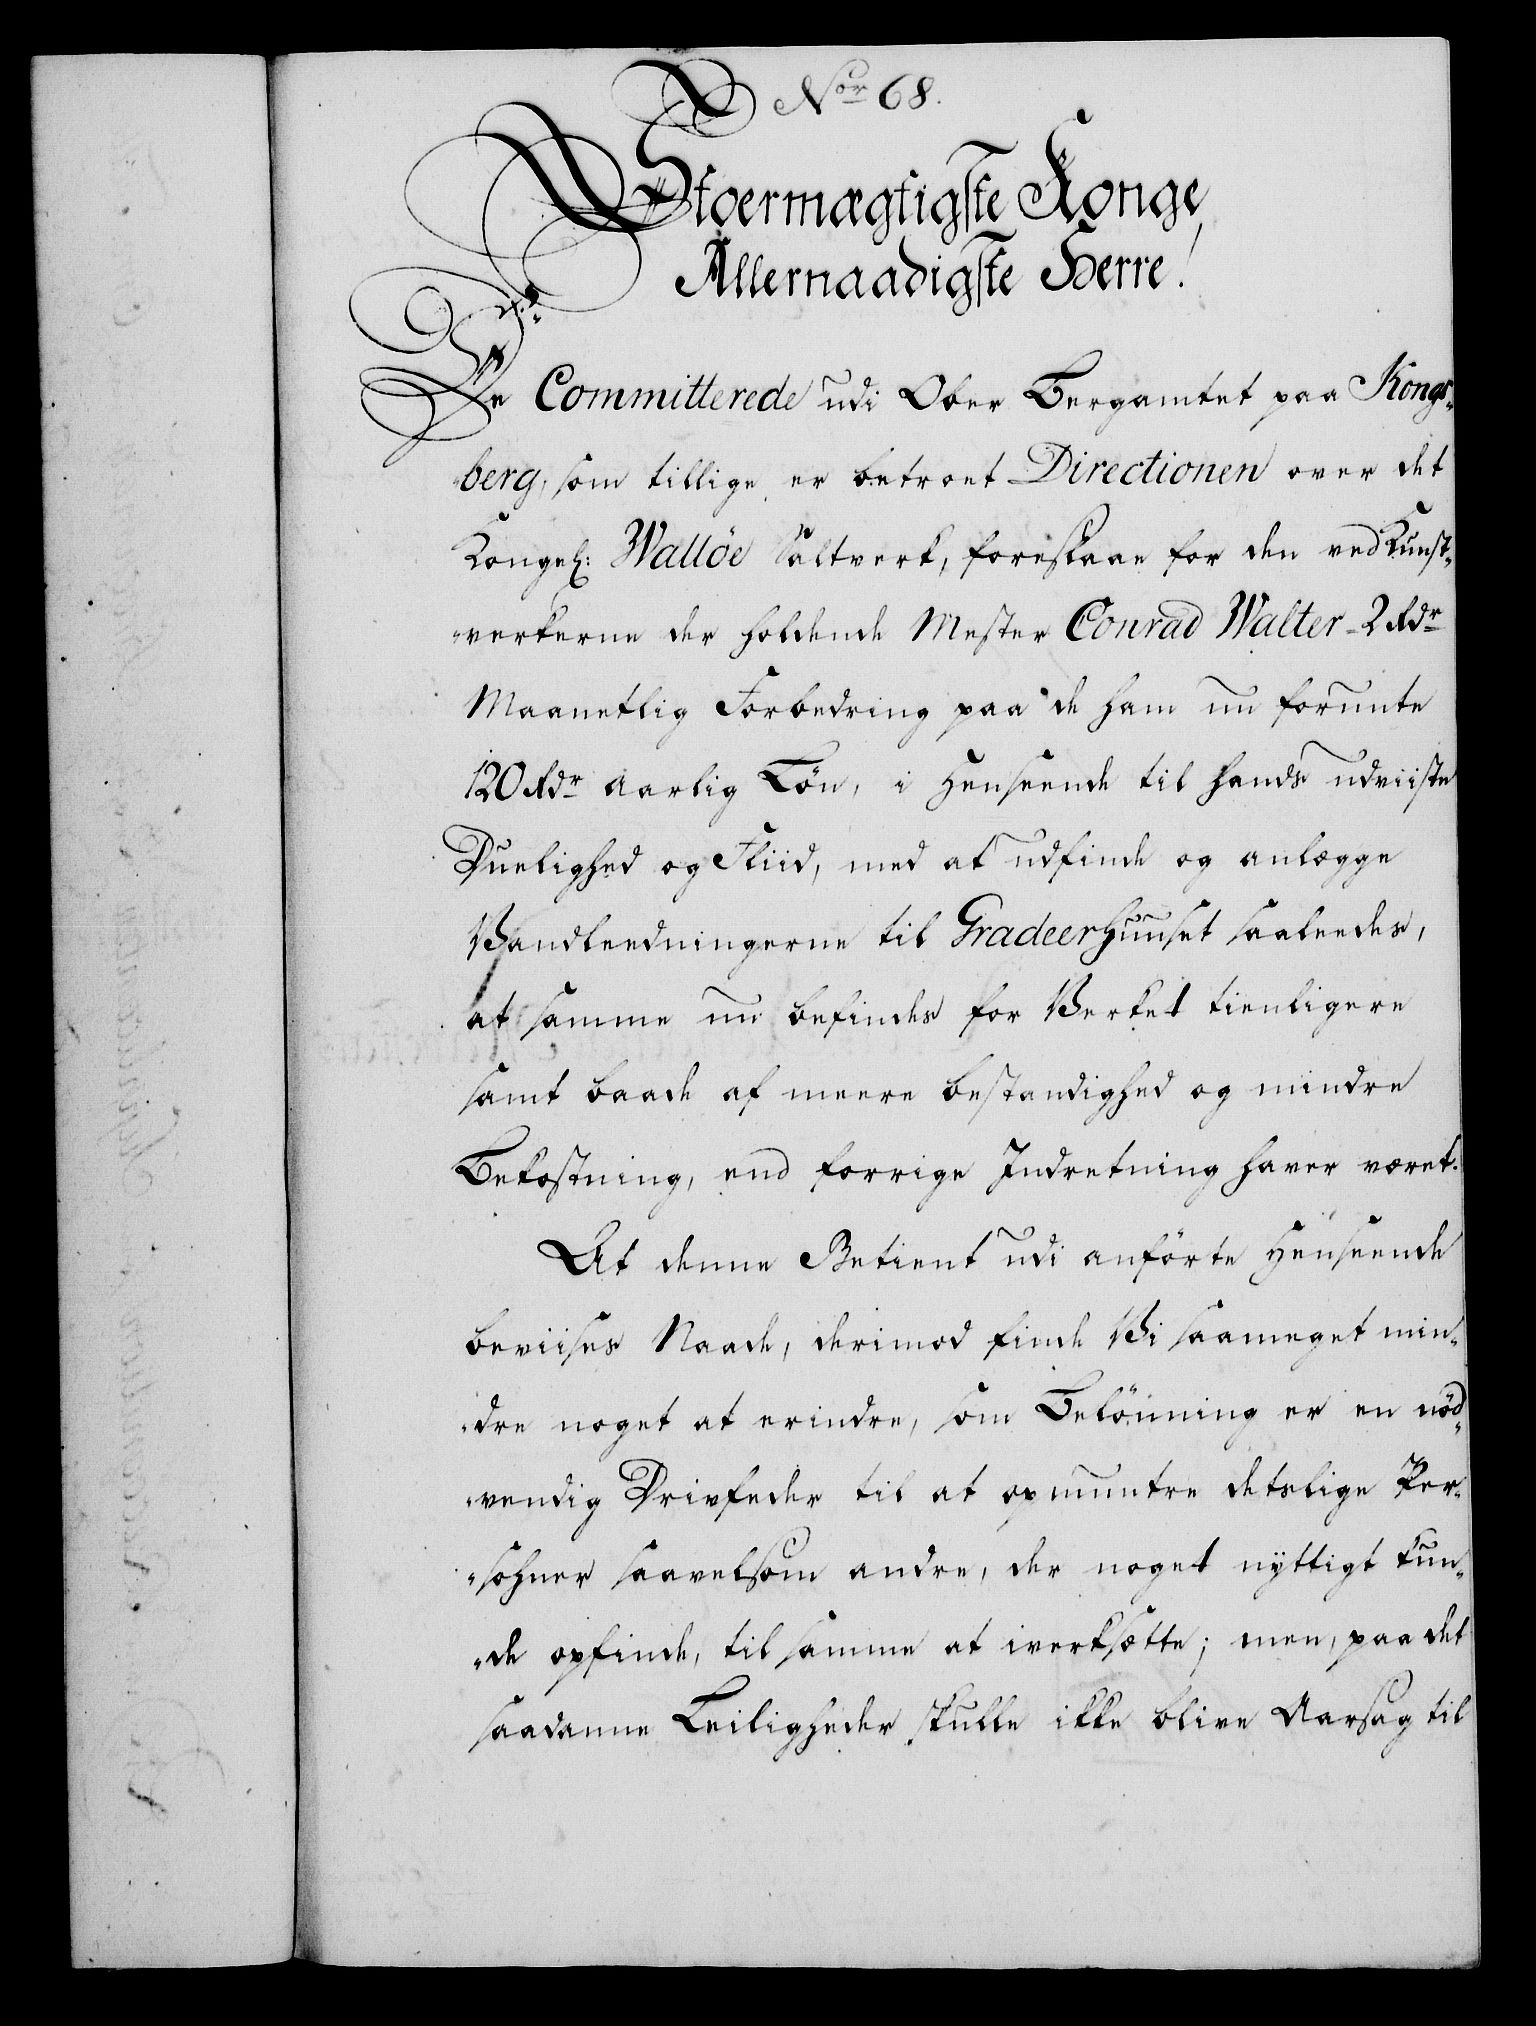 Nor 68.
Stoermægtigste Konge
Allernaadigste Herre!
De Committerede udi Ober Bergamtet paa Kongs-
berg, som tillige er betroet Directionen over det
Kongel: Walløe Saltverk, foreslaae for den ved Kunst-
verkerne der holdende Mester Conrad Walter 2 Rdr
Maanetlig Forbedring paa de ham nu forunte
120 Rdr aarlig Løn, i Henseende til hands udviiste
Duelighed og Fliid, med at udfinde og anlægge
Vandleedningerne til Gradeerhuuset saaleedes,
at samme nu befindes for Verket tienligere
samt baade af meere bestandighed og mindre
Bekostning, end forrige Indretning haver været.
At denne Betient udi anförte Henseende
beviises Naade, derimod finde Vi saameget min-
dre noget at erindre, som Belönning er en nöd-
vendig Drivfeder til at opmuntre detslige Per-
sohner saavelsom andre, der noget nÿttigt kun-
de opfinde, til samme at iverksætte; men, paa det
saadanne Leiligheder skulle ikke blive Aarsag til